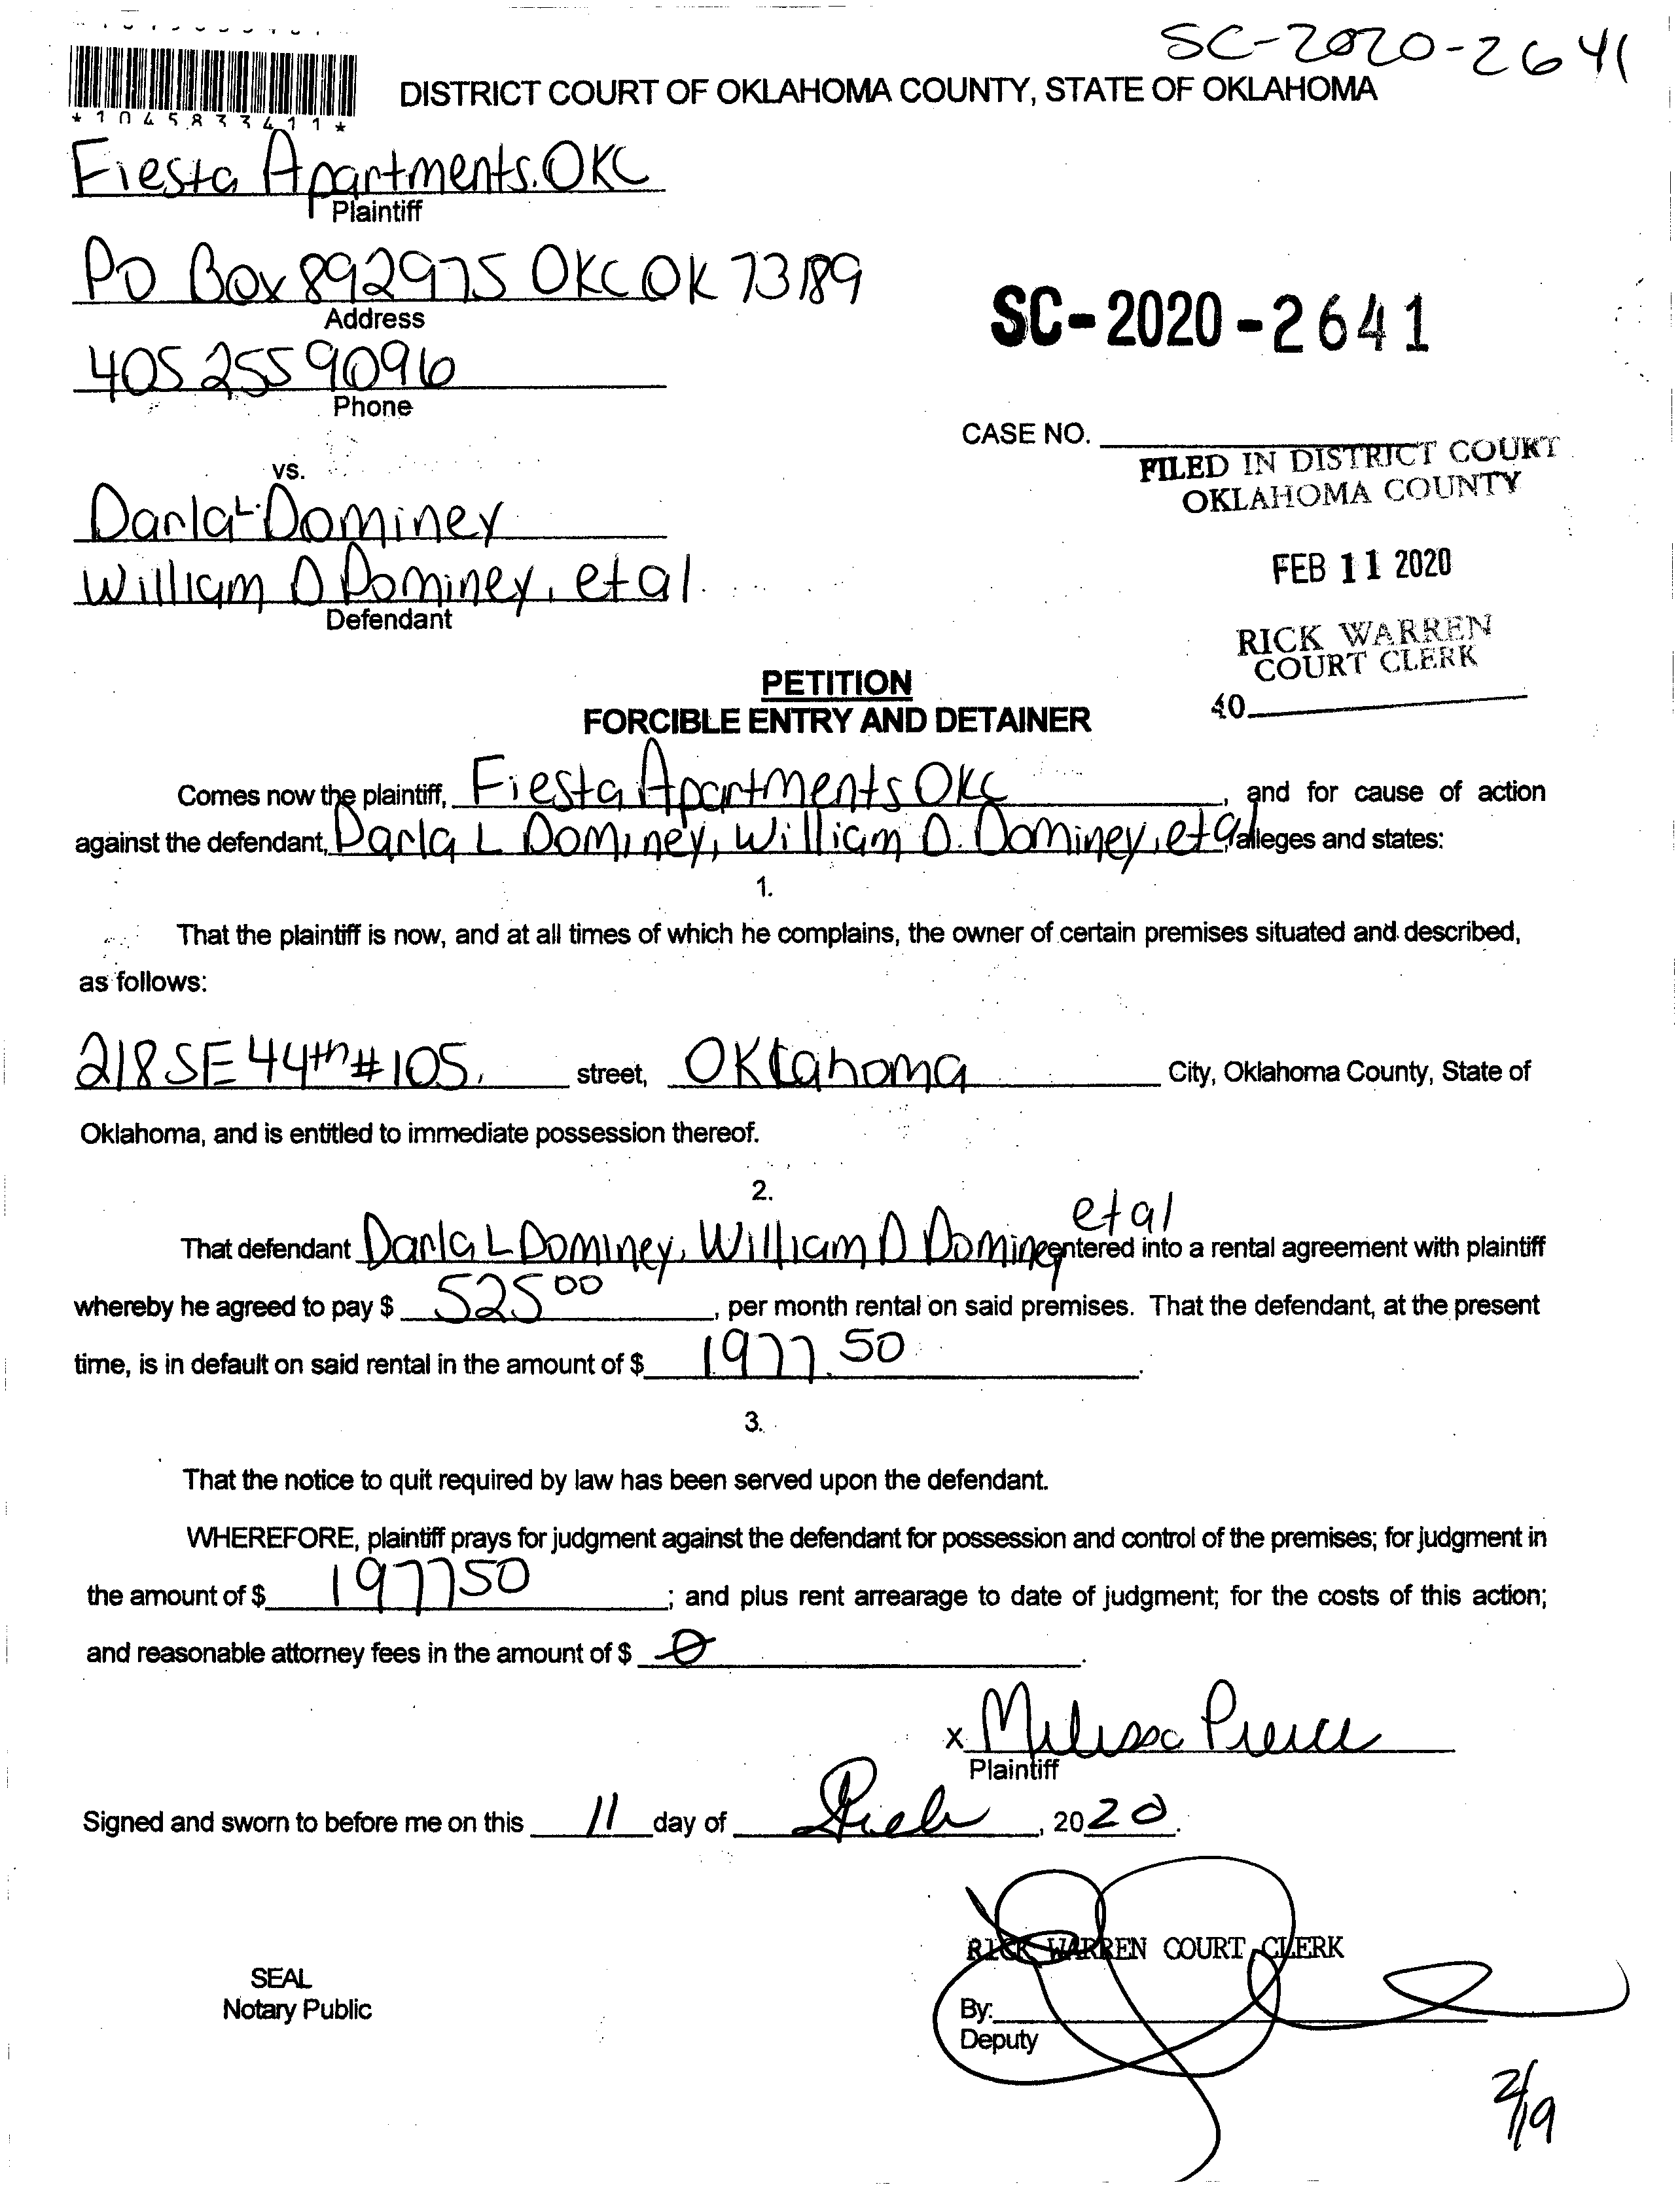 SC-2020-2641
DISTRICT COURT OF OKLAHOMA COUNTY, STATE OF OKLAHOMA
*1045833411*
Fiesta Apartments. OKC
Plaintiff
PO Box 892975 OKC OK 73189
Address
SC-2020-2641
405 255 9096
Phone
CASE NO.
FILED IN DISTRICT COURT
OKLAHOMA COUNTY
vs.
Darla L. Dominey
FEB 11 2020
William D Dominey, et al.
Defendant
RICK WARREN
COURT CLERK
PETITION
40
FORCIBLE ENTRY AND DETAINER
Comes now the plaintiff, Fiesta Apartments OKC, and for cause of action
against the defendant, Darla L Dominey, William D. Dominey, et al alleges and states:
1.
That the plaintiff is now, and at all times of which he complains, the owner of certain premises situated and described,
as follows:
218 SE 44th #105, street, Oklahoma City, Oklahoma County, State of
Oklahoma, and is entitled to immediate possession thereof.
2.
et al
That defendant Darla L Dominey, William D Dominey entered into a rental agreement with plaintiff
whereby he agreed to pay $ 525 00, per month rental on said premises. That the defendant, at the present
time, is in default on said rental in the amount of $ 1977.50.
3.
That the notice to quit required by law has been served upon the defendant.
WHEREFORE, plaintiff prays for judgment against the defendant for possession and control of the premises; for judgment in
the amount of $ 197750; and plus rent arrearage to date of judgment; for the costs of this action;
and reasonable attorney fees in the amount of $ 0.
x Melissa Pierce
Plaintiff
Signed and sworn to before me on this 11 day of Feb, 2020.
RICK WARREN COURT CLERK
SEAL
Notary Public
By:
Deputy
2/19